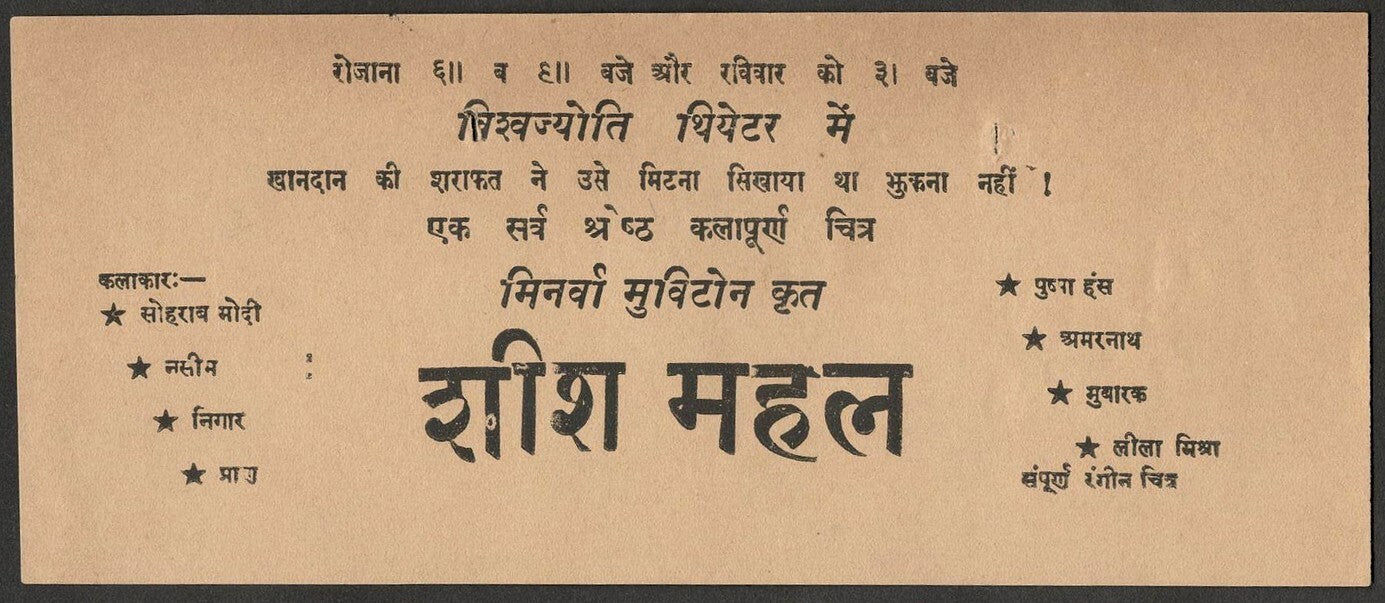 रोजाना ६॥ व ९॥ बजे और रविवार को ३। बजे
विश्वज्योति थियेटर में
खानदान की शराफत ने उसे मिटना सिखाया था झुकना नहीं !
एक सर्व श्रेष्ठ कलापूर्ण चित्र
मिनर्वा मुविटोन कृत
शीश महल
कलाकार:—
★ सोहराब मोदी
★ नसीम
★ निगार
★ प्राण
★ पुष्पा हंस
★ अमरनाथ
★ मुबारक
★ लीला मिश्रा
संपूर्ण रंगीन चित्र